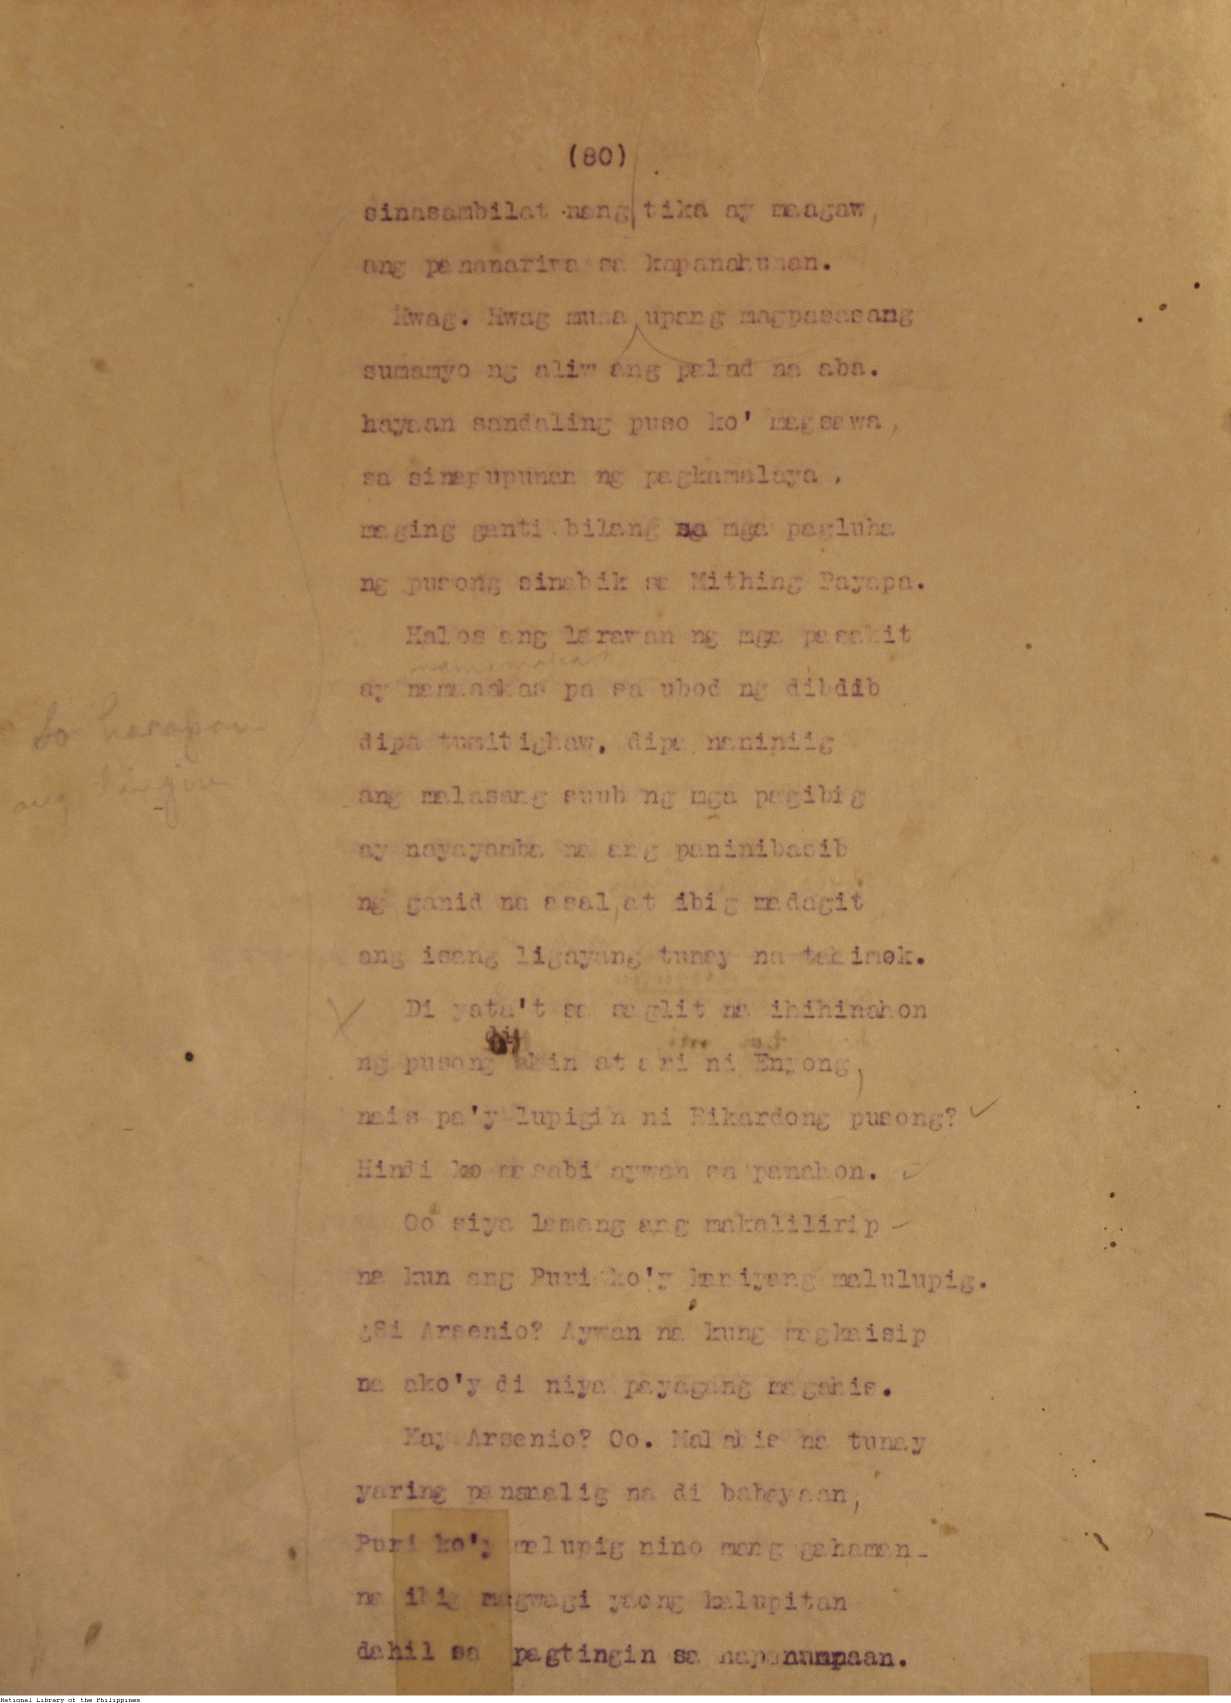 (80)
sinasambilat nang tika ay maagaw,
ang pananariwa sa kapanahunan.
Hwag. Hwag muna, upang magpasasang
sumamyo ng aliw ang palad na aba.
hayaan sandaling puso ko' magsawa,
sa sinapupunan ng pagkamalaya,
maging ganti bilang sa mga pagluha
ng pusong sinabik sa Mithing Payapa.
Halos ang larawan ng mga pasakit
ay pa sa ubod ng dibdib
dipa tumitighaw, dipa naniniig
So harapan
ang malasang suub ng mga pagibig
ang
ay nayayamba na ang paninibasib
ng ganid na asal, at ibig madagit
ang isang ligayang tunay na tahimok.
Di yata't sa saglit na ihihinahon
ng pusong akin at ari ni Enyong,
nais pa'y lupigin ni Rikardong pusong?
Hindi ko masabi aywan sa panahon.
Oo siya lamang ang makalilirip
na kun ang Puri ko'y kaniyang malulupig.
¿Si Arsenio? Aywan na kung magkaisip
na ako'y di niya payagang magahis.
Kay Arsenio? Oo. Malabis na tunay
yaring pananalig na di babayaan,
Puri ko'y malupig nino mang gahaman
na ibig magwagi yaong kalupitan
dahil sa pagtingin sa napanumpaan.
National Library of the Philippines